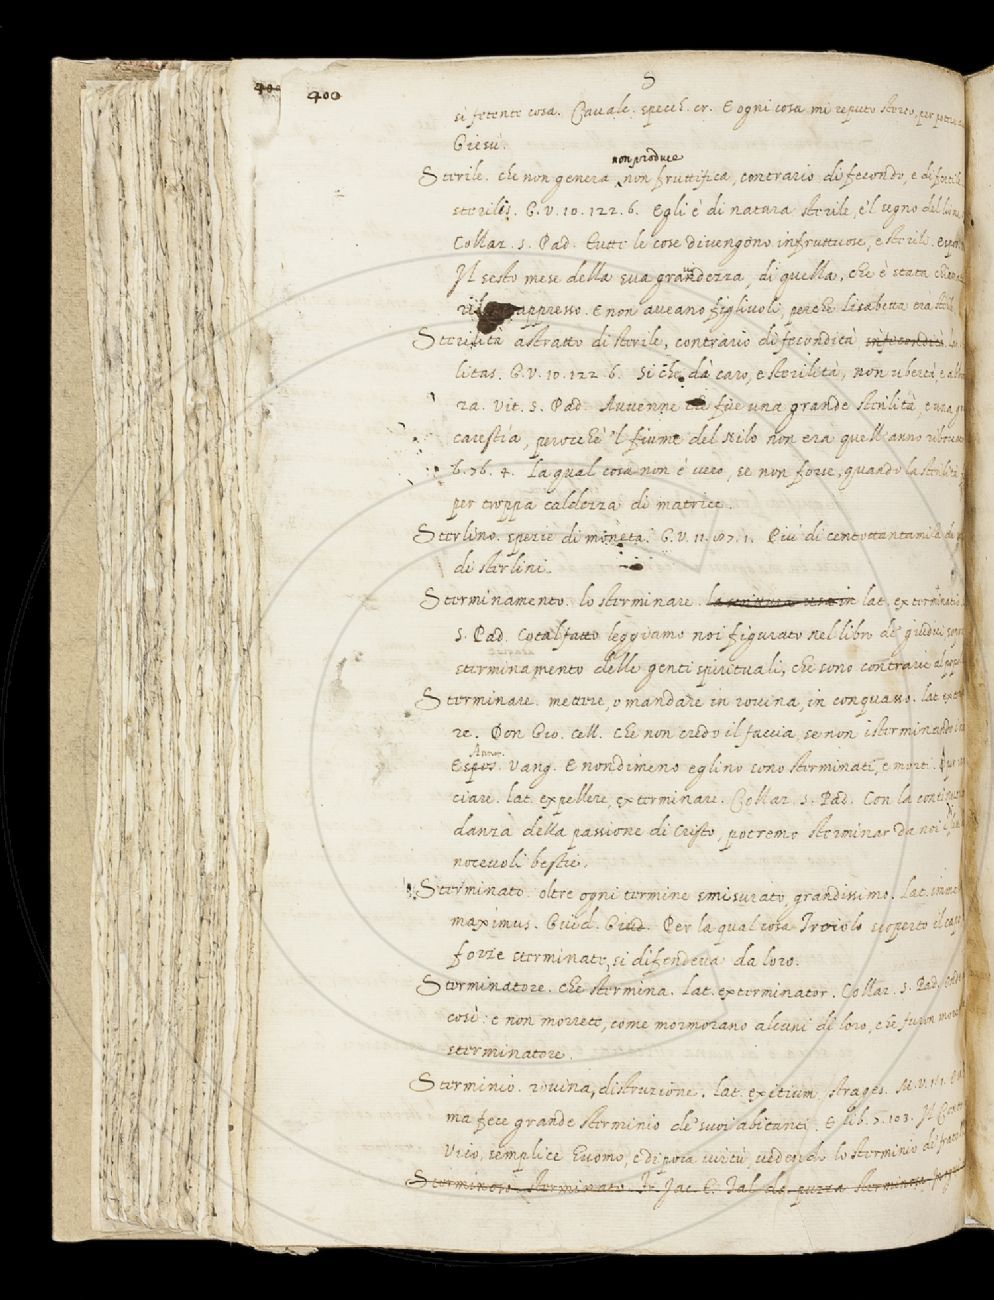 S
400 400
sì fetente cosa. Cavalc. specch. cr. E ogni cosa mi reputo sterco, per poter
Giesù.
non produce
Sterile. che non genera, non fruttifica, contrario di fecondo, e di fertile
sterilis. G. V. 10. 122. 6. Egli è di natura sterile, e 'l segno del
Collaz. S. Pad. tutte le cose divengono infruttuose, e sterili.
Il sesto mese della sua grandezza, di quella, che è stata
appresso. E non aveano figliuoli, perchè Lisabetta era
Sterilità astratto di sterile, contrario di fecondità infecondità.
litas. G. V. 10. 122. 6. Si che dà caro, e sterilità, non ubertà, e
za. Vit. S. Pad. Avvenne che fue una grande sterilità, e una
carestia, perocchè 'l fiume del Nilo non era quell'anno
b. 76. 4. La qual cosa non è vero, se non forse, quando la sterilità
per troppa caldezza di matrice.
Sterlino. spezie di moneta. G. V. 11. 87. 1. Più di centottantamila
di sterlini.
Sterminamento. lo sterminare. la scrittura usa in lat.
S. Pad. Cotal fatto leggiamo noi figurato nel libro de' giudici
sterminamento delle genti spirituali, che sono contrarie al
Sterminare. mettere, o mandare in rovina, in conquasso. lat.
re. Don Gio. Cell. Che non credo il faccia, se non isterminando
Annot.
Espos. Vang. E nondimeno eglino sono sterminati, e morti.
ciare. lat. expellere, exterminare. Collaz. S. Pad. Con la
danza della passione di Cristo, potremo sterminar da noi
nocevoli bestie.
Sterminato. oltre ogni termine smisurato, grandissimo. Lat.
maximus. Guid. Giud. Per la qual cosa Troiolo scoperto il capo
forze sterminato, si difendeva da loro.
Sterminatore. che stermina. Lat. exterminator. Collaz. S. Pad.
così: e non morrete, come mormorano alcuni di loro, che furon
sterminatore.
Sterminio. rovina, distruzione. lat. exitium, strages. M. V.
ma fece grande sterminio de' suoi abitanti. E lib. 7. 103. Il
Vico, semplice huomo, e di poca virtù, vedendo lo sterminio de'
Stermineso. sterminato. Fr. Jac. T. Tal de puzza sterminosa